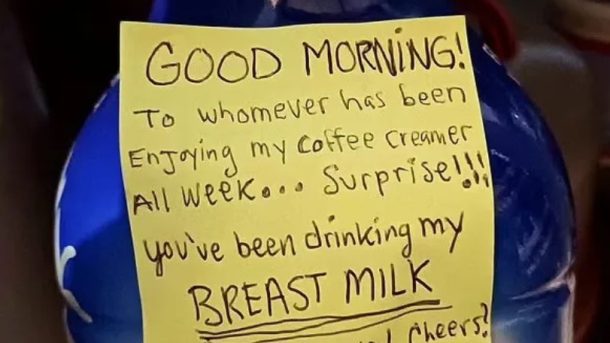 GOOD MORNING!
To whomever has been
Enjoying my coffee creamer
All week... Surprise!!!
you've been drinking my
BREAST MILK
Cheers?